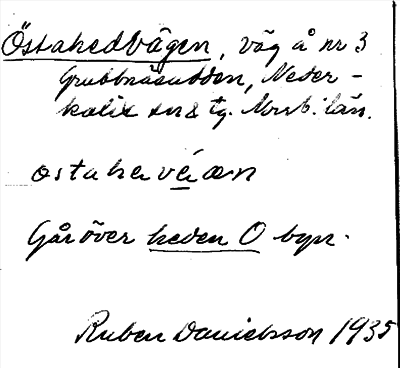 Östahedvägen, väg å nr 3
Grubbnäsudden, Neder-
kalix sn & tg. Norrb. län.
ostahevéæn
Går över heden O byn.
Ruben Danielsson 1935